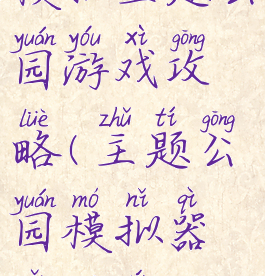 yuán yóu xì gōng
园游戏攻
lüè zhǔ tí gōng
略(主题公
yuán mó nǐ qì
园模拟器